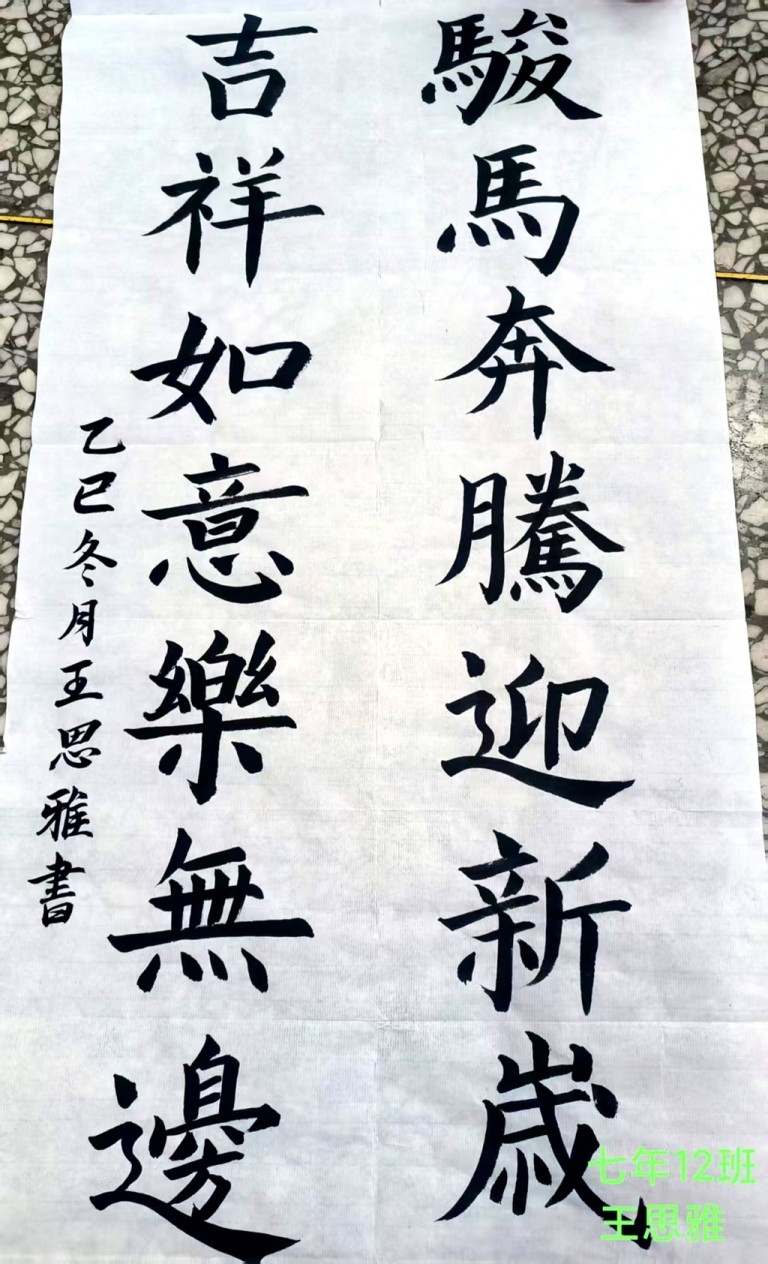 駿馬奔騰迎新歲
吉祥如意樂無邊
乙巳冬月王思雅書
七年12班
王思雅